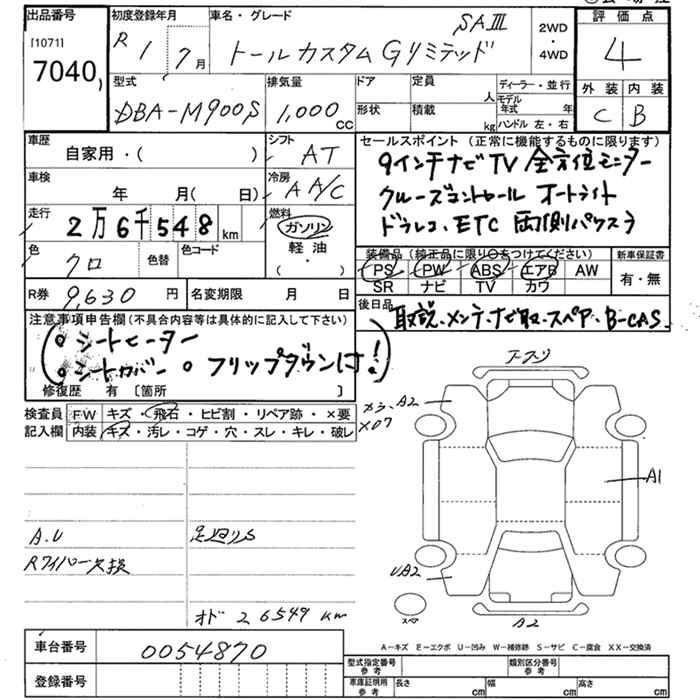 出品番号 初度登録年月 車名・グレード 評価点
[1071] R 1 7月 トールカスタムGリミテッド SAⅢ 2WD・4WD 4
7040
型式 排気量 ドア 定員 人 ディーラー・並行 外装 内装
DBA-M900S 1,000cc 形状 積載 kg モデル年式 年 ハンドル 左・右 C B
車歴 自家用・( ) シフト AT セールスポイント(正常に機能するものに限ります)
9インチナビTV 全方位モニター
車検 年 月(日) 冷房 AA/C クルーズコントロール オートライト
走行 2万6千548km 燃料 ガソリン 軽油 (・) ドラレコ、ETC 両側パワスラ
色 クロ 色替 色コード 装備品(純正品に限り○をつけてください) 新車保証書
PS PW ABS エアB AW 有・無
SR ナビ TV カワ
R券 9,630円 名変期限 月 日 後日品
取説・メンテ・ナビ取・スペア・B-CAS
注意事項申告欄(不具合内容等は具体的に記入して下さい)
シートヒーター
シートカバー フリップダウンは!
修復歴 有[箇所 ]
検査員記入欄 FW キズ・飛石・ヒビ割・リペア跡・×要
内装 キズ・汚レ・コゲ・穴・スレ・キレ・破レ
A2
A1
A.U 足廻りS
Rワイパー欠損
UA2
オド 26549km
スペア A2
車台番号 0054870
A-キズ E-エクボ U-凹み W-補修跡 S-サビ C-腐食 XX-交換済
登録番号 型式指定番号 参考 類別区分番号 参考
車庫証明用 参考 長さ cm 幅 cm 高さ cm